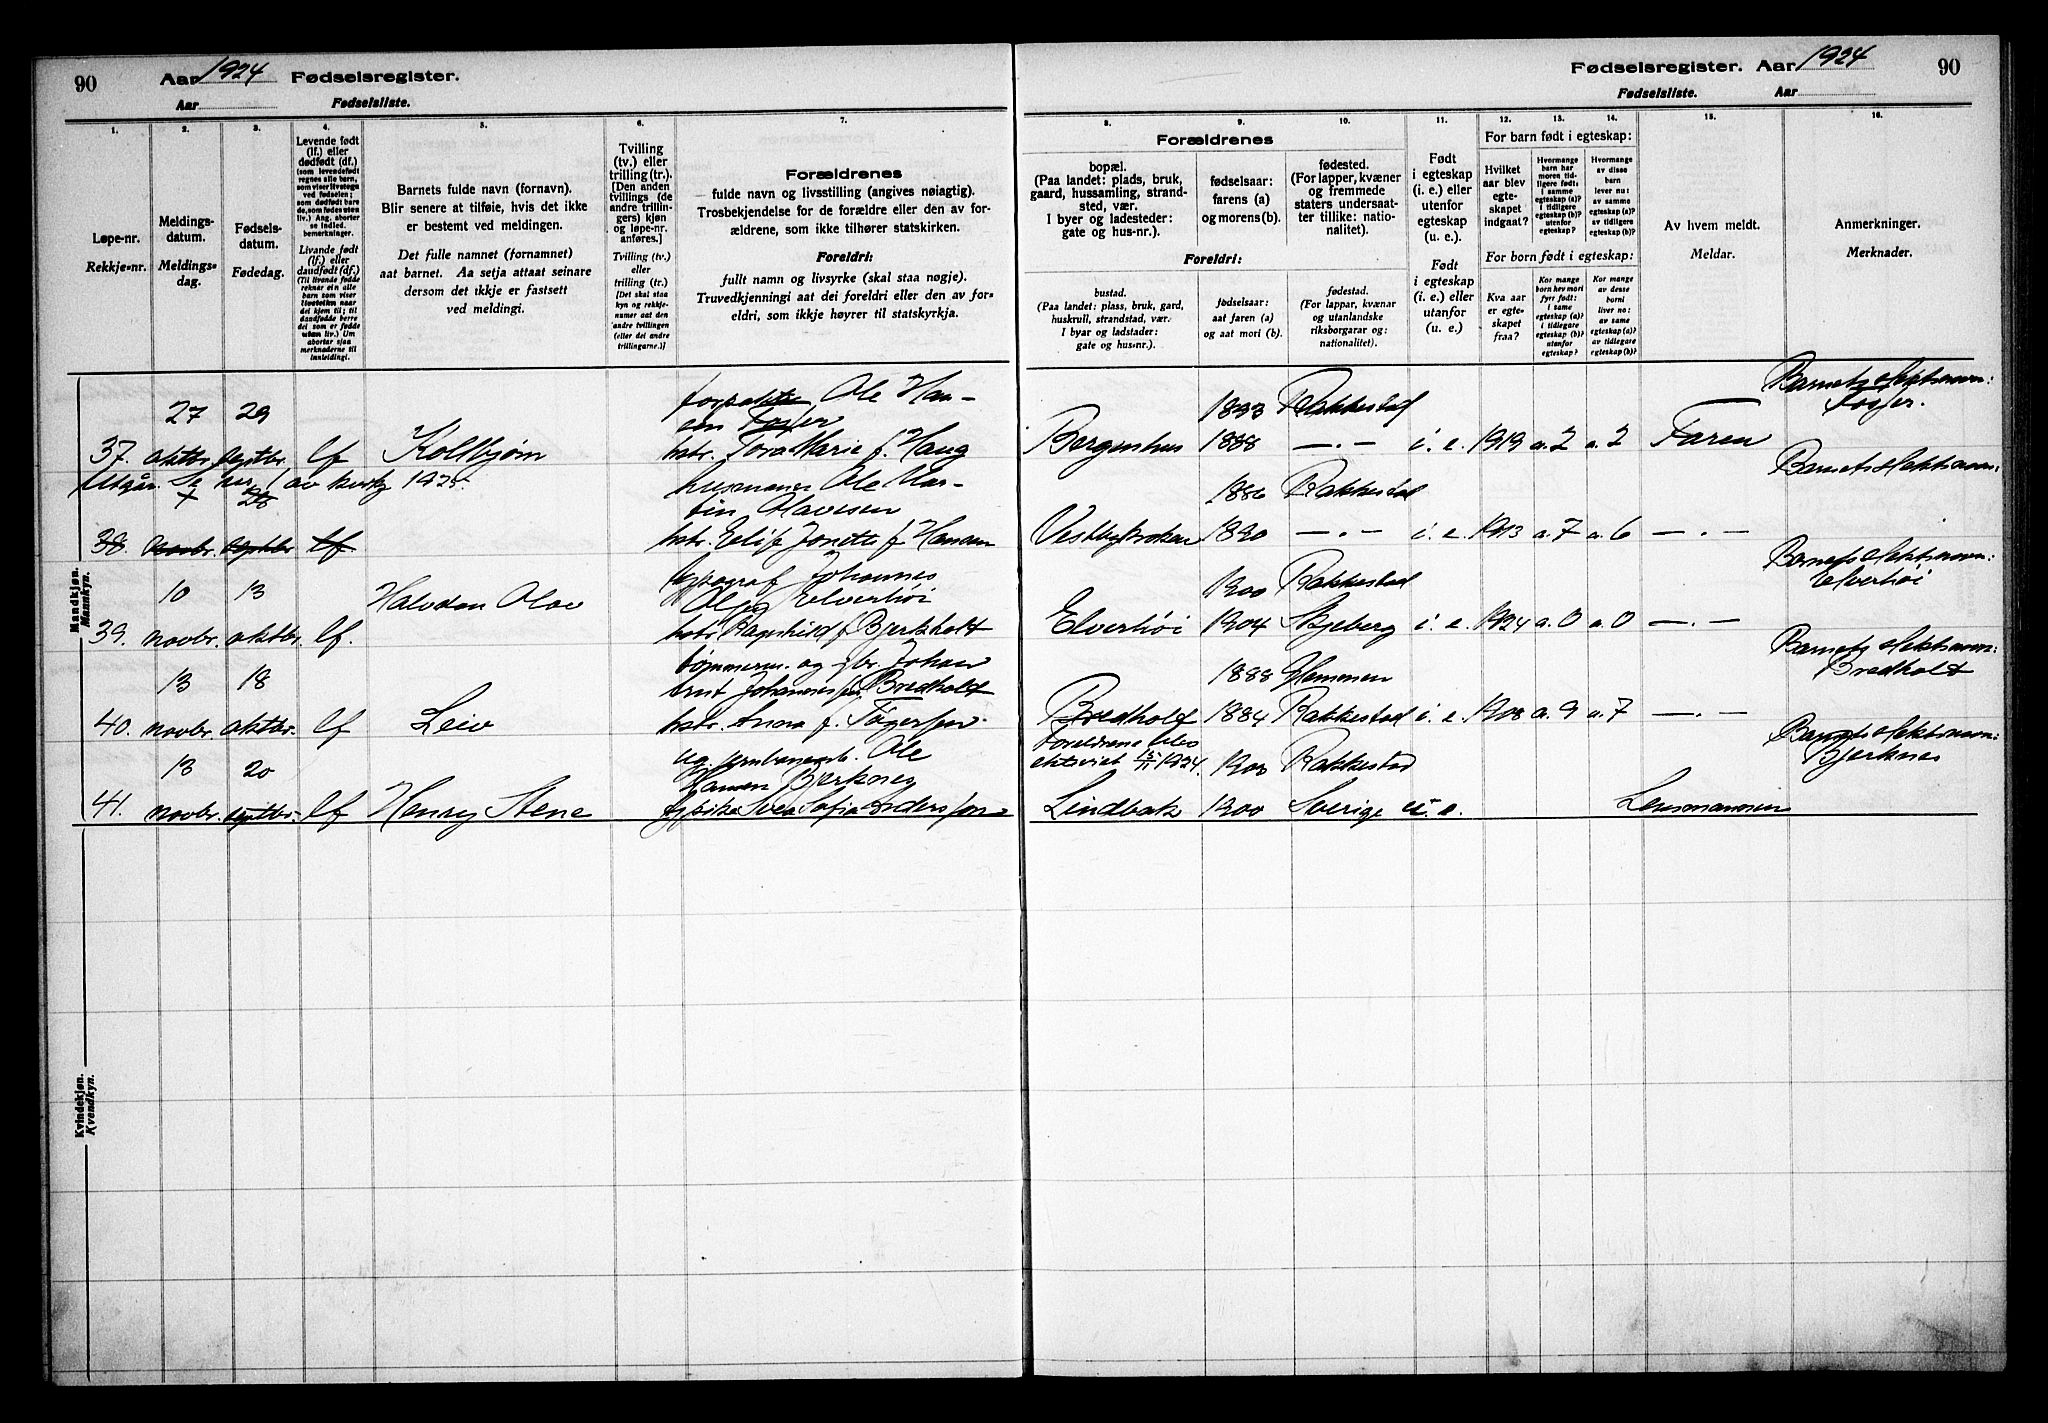 90
Aar 1924 Fødselsregister.
Aar Fødselsliste.
1. 2. 3. 4. 5. 6. 7.
Løpe-nr.
Rekkje-nr.
Meldings-
datum.
Meldings-
dag.
Fødsels-
datum.
Fødedag.
Levende født
(lf.) eller
dødfødt (df.)
(som levendefødt
regnes alle barn,
som viser livstegn
ved fødselen;
som dødfødt ba-
re de, som fødes uten
liv.) Ang. aborter
se indled.
bemerkninger.
Livande født
(lf.) eller
daudfødt (df.)
(Til livande fødde
reknar ein alle
barn som viser
livsteikn naar
dei kjem til; til
daudfødde berre
dei som er fødde
utan liv.) Um
abortar sjaa
merknaderne til
innleidingi.
Barnets fulde navn (fornavn).
Blir senere at tilføie, hvis det ikke
er bestemt ved meldingen.
Det fulle namnet (fornamnet)
aat barnet. Aa setja attaat seinare
dersom det ikkje er fastsett
ved meldingi.
Tvilling
(tv.) eller
trilling (tr.)
[Den anden
tvillings (de
andre trillin-
gers) kjøn
og løpe-nr.
anføres.]
Tvilling (tv.)
eller
trilling (tr.)
[Det skal staa
kyn og rekkje-
numer aat den
andre tvillingen
(eller dei andre
trillingarne.)]
Forældrenes
fulde navn og livsstilling (angives nøiagtig).
Trosbekjendelse for de forældre eller den av for-
ældrene, som ikke tilhører statskirken.
Foreldri:
fullt namn og livsyrke (skal staa nøgje).
Truvedkjenningi aat dei foreldri eller den av for-
eldri, som ikkje høyrer til statskyrkja.
Mandkjøn.
Mannkyn.
27 29
37. oktbr. septbr. lf Kolbjørn
forpakter Ole Han-
sen Fosser
hstr. Tora Marie f. Haug
Utgår. Se nr. 1 av kvartj 1925.
+ 28
38. novbr. septbr lf
husmann Ole Mar-
tin Olavesen
hstr. Elise Jonette f. Hansen
10 13
39. novbr. oktbr. lf. Halvdan Olav
typograf Johannes
Olaf Elverhöi
hstr. Ragnhild f. Bjerkholt
13 18
40. novbr. oktbr. lf Leiv
tømmerm. og gbr. Johan
Ernst Johannessen Bredholt
hstr. Anna f. Fagersen.
13 20
41. novbr. septbr. lf Henry Stene
ug. jernbanearb. Ole
Hansen Bjerknes
og pike Svea Sofia Andersson
Kvindekjøn.
Kvendkyn.
Fødselsregister. Aar 1924 90
Fødselsliste. Aar
8. 9. 10. 11. 12. 13. 14. 15. 16.
Forældrenes
bopæl.
(Paa landet: plads, bruk,
gaard, hussamling, strand-
sted, vær.
I byer og ladesteder:
gate og hus-nr.).
fødselsaar:
farens (a)
og morens (b).
fødested.
(For lapper, kvæner
og fremmede
staters undersaat-
ter tillike: natio-
nalitet).
Foreldri:
bustad.
(Paa landet: plass, bruk, gard,
huskrull, strandstad, vær.
I byar og ladstader:
gate og hus-nr.).
fødselsaar:
aat faren (a)
og aat mori (b).
fødestad.
(For lappar, kvænar
og utanlandske
riksborgarar og:
nationalitet).
Født
i egteskap
(i. e.) eller
utenfor
egteskap
(u. e.).
Født
i egteskap
(i. e.) eller
utanfor
(u. e.).
For barn født i egteskap:
Hvilket
aar blev
egte-
skapet
indgaat?
Hvormange
barn har
moren tid-
ligere født:
i samme
egteskap (a)?
i tidligere
egteskap (b)?
utenfor
egteskap?
Hvormange
av disse
barn
lever nu:
av samme
egteskap (a)?
av tidligere
egteskap (b)?
For born født i egteskap:
Kva aar
er egte-
skapet
fraa?
Kor mange
born hev mori
fyrr født:
i same
egteskap (a)?
i tidlegare
egteskap (b)?
utanfor
egteskap?
Kor mange
av desse
borni
liver no:
av same
egteskap (a)?
av tidlegare
egteskap (b)?
Av hvem meldt.
Meldar.
Anmerkninger.
Merknader.
1893 Rakkestad
Bergenshus 1888 —.— i. e. 1919 a. 2 a. 2 Faren
Barnets slektsnavn:
Fosser.
1886 Rakkestad
Vestbykroken 1890 —.— i. e. 1913 a. 7 a. 6 —.—
Barnets slektsnavn:
1900 Rakkestad
Elverhöi 1904 Skjeberg i. e. 1924 a. 0 a. 0 —.—
Barnets slektsnavn:
Elverhöi
1888 Glemmen
Bredholt 1884 Rakkestad i. e. 1908 a. 9 a. 7 —.—
Barnets slektsnavn:
Bredholt
Foreldrene blev
ekteviet 1924.
1900 Rakkestad
Lindbak 1900 Sverige u. e. Lensmannen
Barnets slektsnavn:
Bjerknes